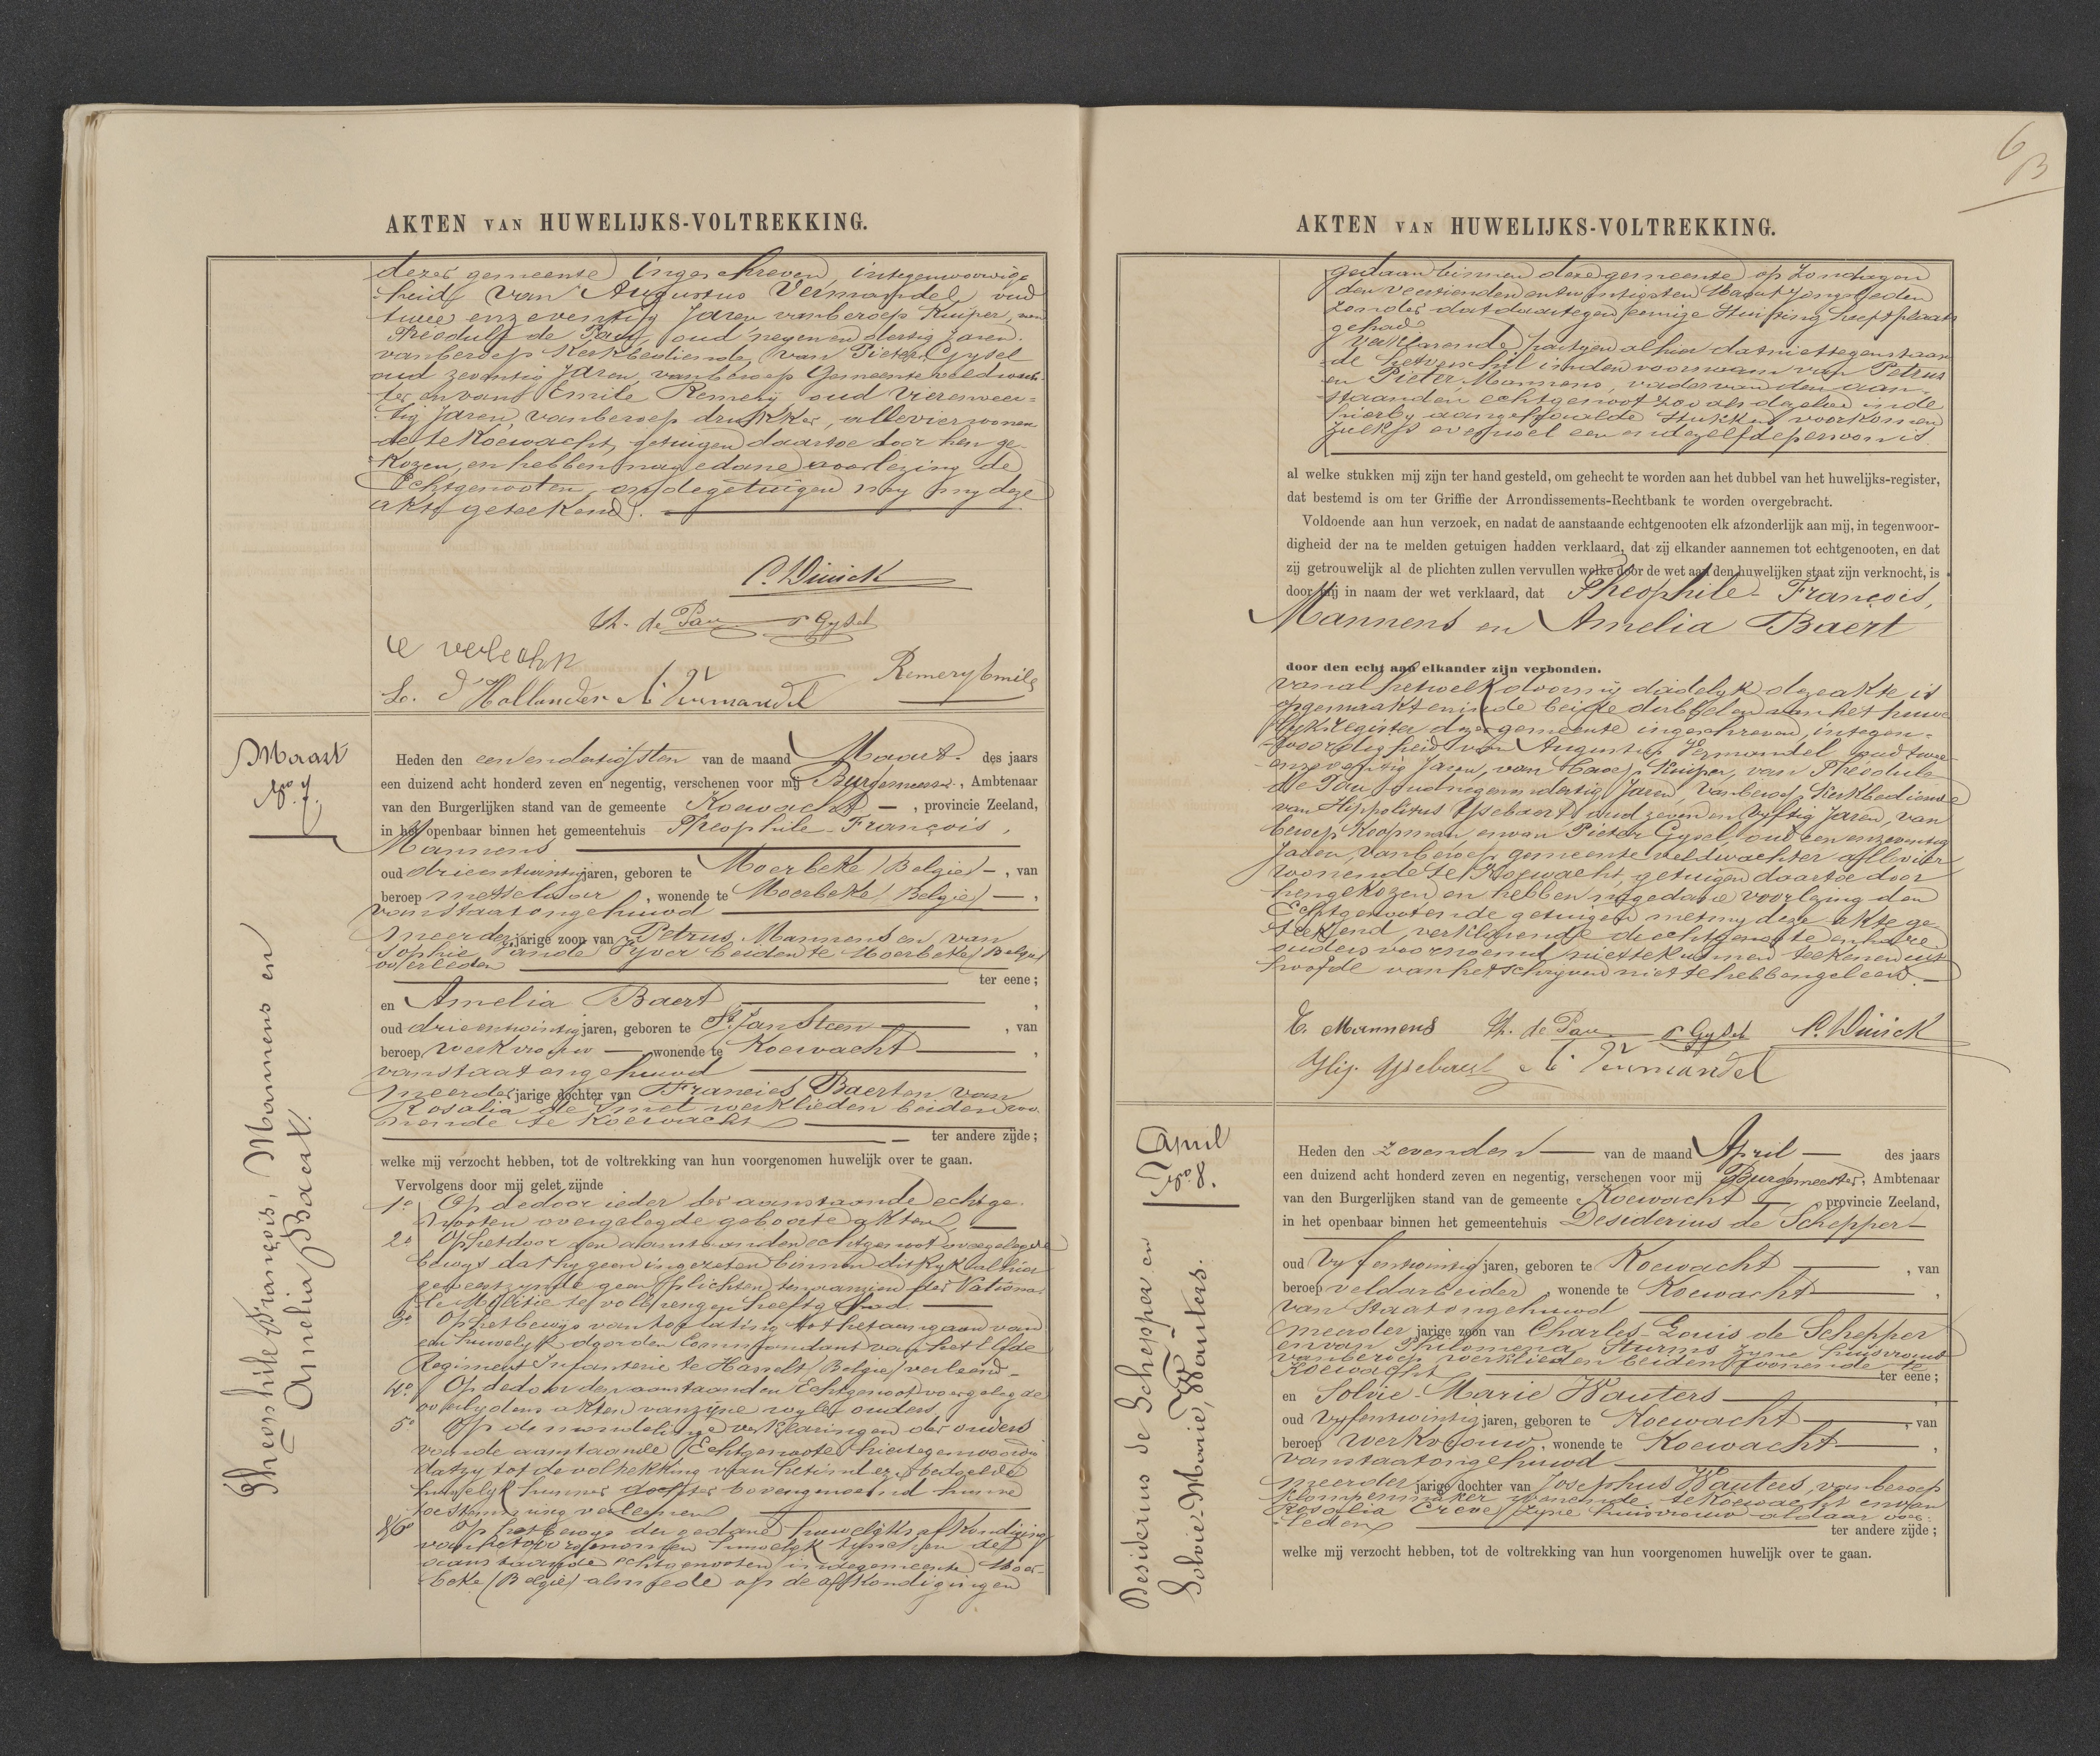 AKTEN VAN HUWELIJKS-VOLTREKKING.
dezer gemeente ingeschreven, in tegenwoordig-
heid van Augustus Vermandel oud
twee en zeventig Jaren van beroep Kuiper, van
Theodule de Pauw, oud negen en dertig Jaren
van beroep Kerkbediende, van Pieter Gysel
oud zeventig Jaren, van beroep Gemeente veldwach-
ter en van Emile Remery oud Vierenveer-
tig Jaren, van beroep drukker, alle vier wonen
de te Koewacht, getuigen daartoe door hen ge-
kozen, en hebben na gedane voorlezing de
Echtgenooten, en de getuigen met my deze
akte geteekend.
P. Dinick
Th. de Pau P Gysel
L. d'Hollander A. Vermandel
Remery Emile
Maart
No. 7.
Theophile François, Mannens en
Amelia Baert.
Heden den eenendertigsten van de maand Maart. des jaars
een duizend acht honderd zeven en negentig, verschenen voor mij Burgemeester, Ambtenaar
van den Burgerlijken stand van de gemeente Koewacht —, provincie Zeeland,
in het openbaar binnen het gemeentehuis Theophile-François,
Mannens
oud drieentwintig jaren, geboren te Moerbeke (Belgie) —, van
beroep metselaar, wonende te Moerbeke (Belgie) —,
van staat ongehuwd
meerder jarige zoon van Petrus Mannens en van
Sophie van de Vyver beiden te Moerbeke (Belgie)
overleden
ter eene;
en Amelia Baert,
oud drieentwintig jaren, geboren te St. Jan Steen, van
beroep werkvrouw — wonende te Koewacht,
van staat ongehuwd
meerder jarige dochter van Francies Baert en van
Rosalia de Smet werklieden beiden wo-
nende te Koewacht
ter andere zijde;
welke mij verzocht hebben, tot de voltrekking van hun voorgenomen huwelijk over te gaan.
Vervolgens door mij gelet zijnde
1o. Op de door ieder der aanstaande echtge-
nooten overgelegde geboorte akten.
2o Op het door den aanstaanden echtgenoot overgelegde
bewys dat hy geen ingezeten binnen dit Ryk alhier
geweest zynde geen plichten ten aanzien der Nationa-
le Militie te volbrengen heeft gehad.
3o Op het bewys van toelating tot het aangaan van
een huwelyk door den Commandant van het Elfde
Regiment Infanterie te Hasselt (Belgie) verleend.
4o. Op de door den aanstaanden Echtgenoot voorgelegde
overlydens akten van zyne wyle ouders
5o Op de mondelinge verklaringen der ouders
van de aanstaande Echtgenoote hier tegenwoordig
dat zy tot de voltrekking van het in dezen bedoelde
huwelyk hunner dochter bovengenoemd hunne
toestemming verleenen
6o Op het bewys der gedane huwelyks afkondiging
van het voorgenomen huwelyk tusschen de
aanstaande echtgenooten in de gemeente Moer-
beke (Belgie) almede op de afkondigingen
6
B
AKTEN VAN HUWELIJKS-VOLTREKKING.
gedaan binnen deze gemeente op Zondagen
den veertienden en twintigsten Maart jongstleden
zonder dat daartegen eenige stuiting heeft plaats
gehad
Verklarende partyen alhier dat niettegenstaan-
de het verschil in den voornaam van Petrus
en Pieter Mannens, vader van den aan-
staanden echtgenoot zooals dezelve in de
hierby aangehaalde stukken voorkomen
zulks evenwel een en dezelfde persoon is.
al welke stukken mij zijn ter hand gesteld, om gehecht te worden aan het dubbel van het huwelijks-register,
dat bestemd is om ter Griffie der Arrondissements-Rechtbank te worden overgebracht.
Voldoende aan hun verzoek, en nadat de aanstaande echtgenooten elk afzonderlijk aan mij, in tegenwoor-
digheid der na te melden getuigen hadden verklaard, dat zij elkander aannemen tot echtgenooten, en dat
zij getrouwelijk al de plichten zullen vervullen welke door de wet aan den huwelijken staat zijn verknocht, is
door mij in naam der wet verklaard, dat Theophile-François,
Mannens en Amelia Baert
door den echt aan elkander zijn verbonden.
van al hetwelk door my dadelyk deze akte is
opgemaakt en in de beide dubbelen van het huwe-
lyksregister dezer gemeente ingeschreven, in tegen-
woordigheid van Augustus Vermandel oud twee
en zeventig Jaren, van beroep Kuiper, van Théodule
de Pau oud negenendertig Jaren van beroep Kerkbediende
van Hippolitus Ysebaert oud zeven en vyftig Jaren, van
beroep Koopman, en van Pieter Gysel, oud een en zeventig
Jaren, van beroep gemeente veldwachter alle vier
wonende te Koewacht getuigen daartoe door
hen gekozen en hebben na gedane voorlezing den
Echtgenoot en de getuigen met my deze akte ge-
teekend, verklarende de echtgenoote en hare
ouders voornoemd niet te kunnen teekenen uit
hoofde van het schryven niet te hebben geleerd.
T. Mannens Th. de Pau P Gysel P. Dinick
Hip. Ysebaert A. Vermandel
April
No. 8.
Desiderius de Schepper en
Solvie-Marie, Wauters.
Heden den zevenden — van de maand April — des jaars
een duizend acht honderd zeven en negentig, verschenen voor mij Burgemeester, Ambtenaar
van den Burgerlijken stand van de gemeente Koewacht —, provincie Zeeland,
in het openbaar binnen het gemeentehuis Desiderius de Schepper —
oud Vyfentwintig jaren, geboren te Koewacht, van
beroep veldarbeider wonende te Koewacht,
van staat ongehuwd
meerder jarige zoon van Charles-Louis de Schepper
en van Philomena Sturms zyne huisvrouw
van beroep werklieden beiden wonende te
Koewacht
ter eene;
en Solvie-Marie Wauters,
oud Vyfentwintig jaren, geboren te Koewacht, van
beroep werkvrouw, wonende te Koewacht,
van staat ongehuwd
meerder jarige dochter van Josephus Wauters, van beroep
Klompenmaker wonende te Koewacht en van
Rosalia Creve zyne huisvrouw aldaar over-
leden
ter andere zijde;
welke mij verzocht hebben, tot de voltrekking van hun voorgenomen huwelijk over te gaan.